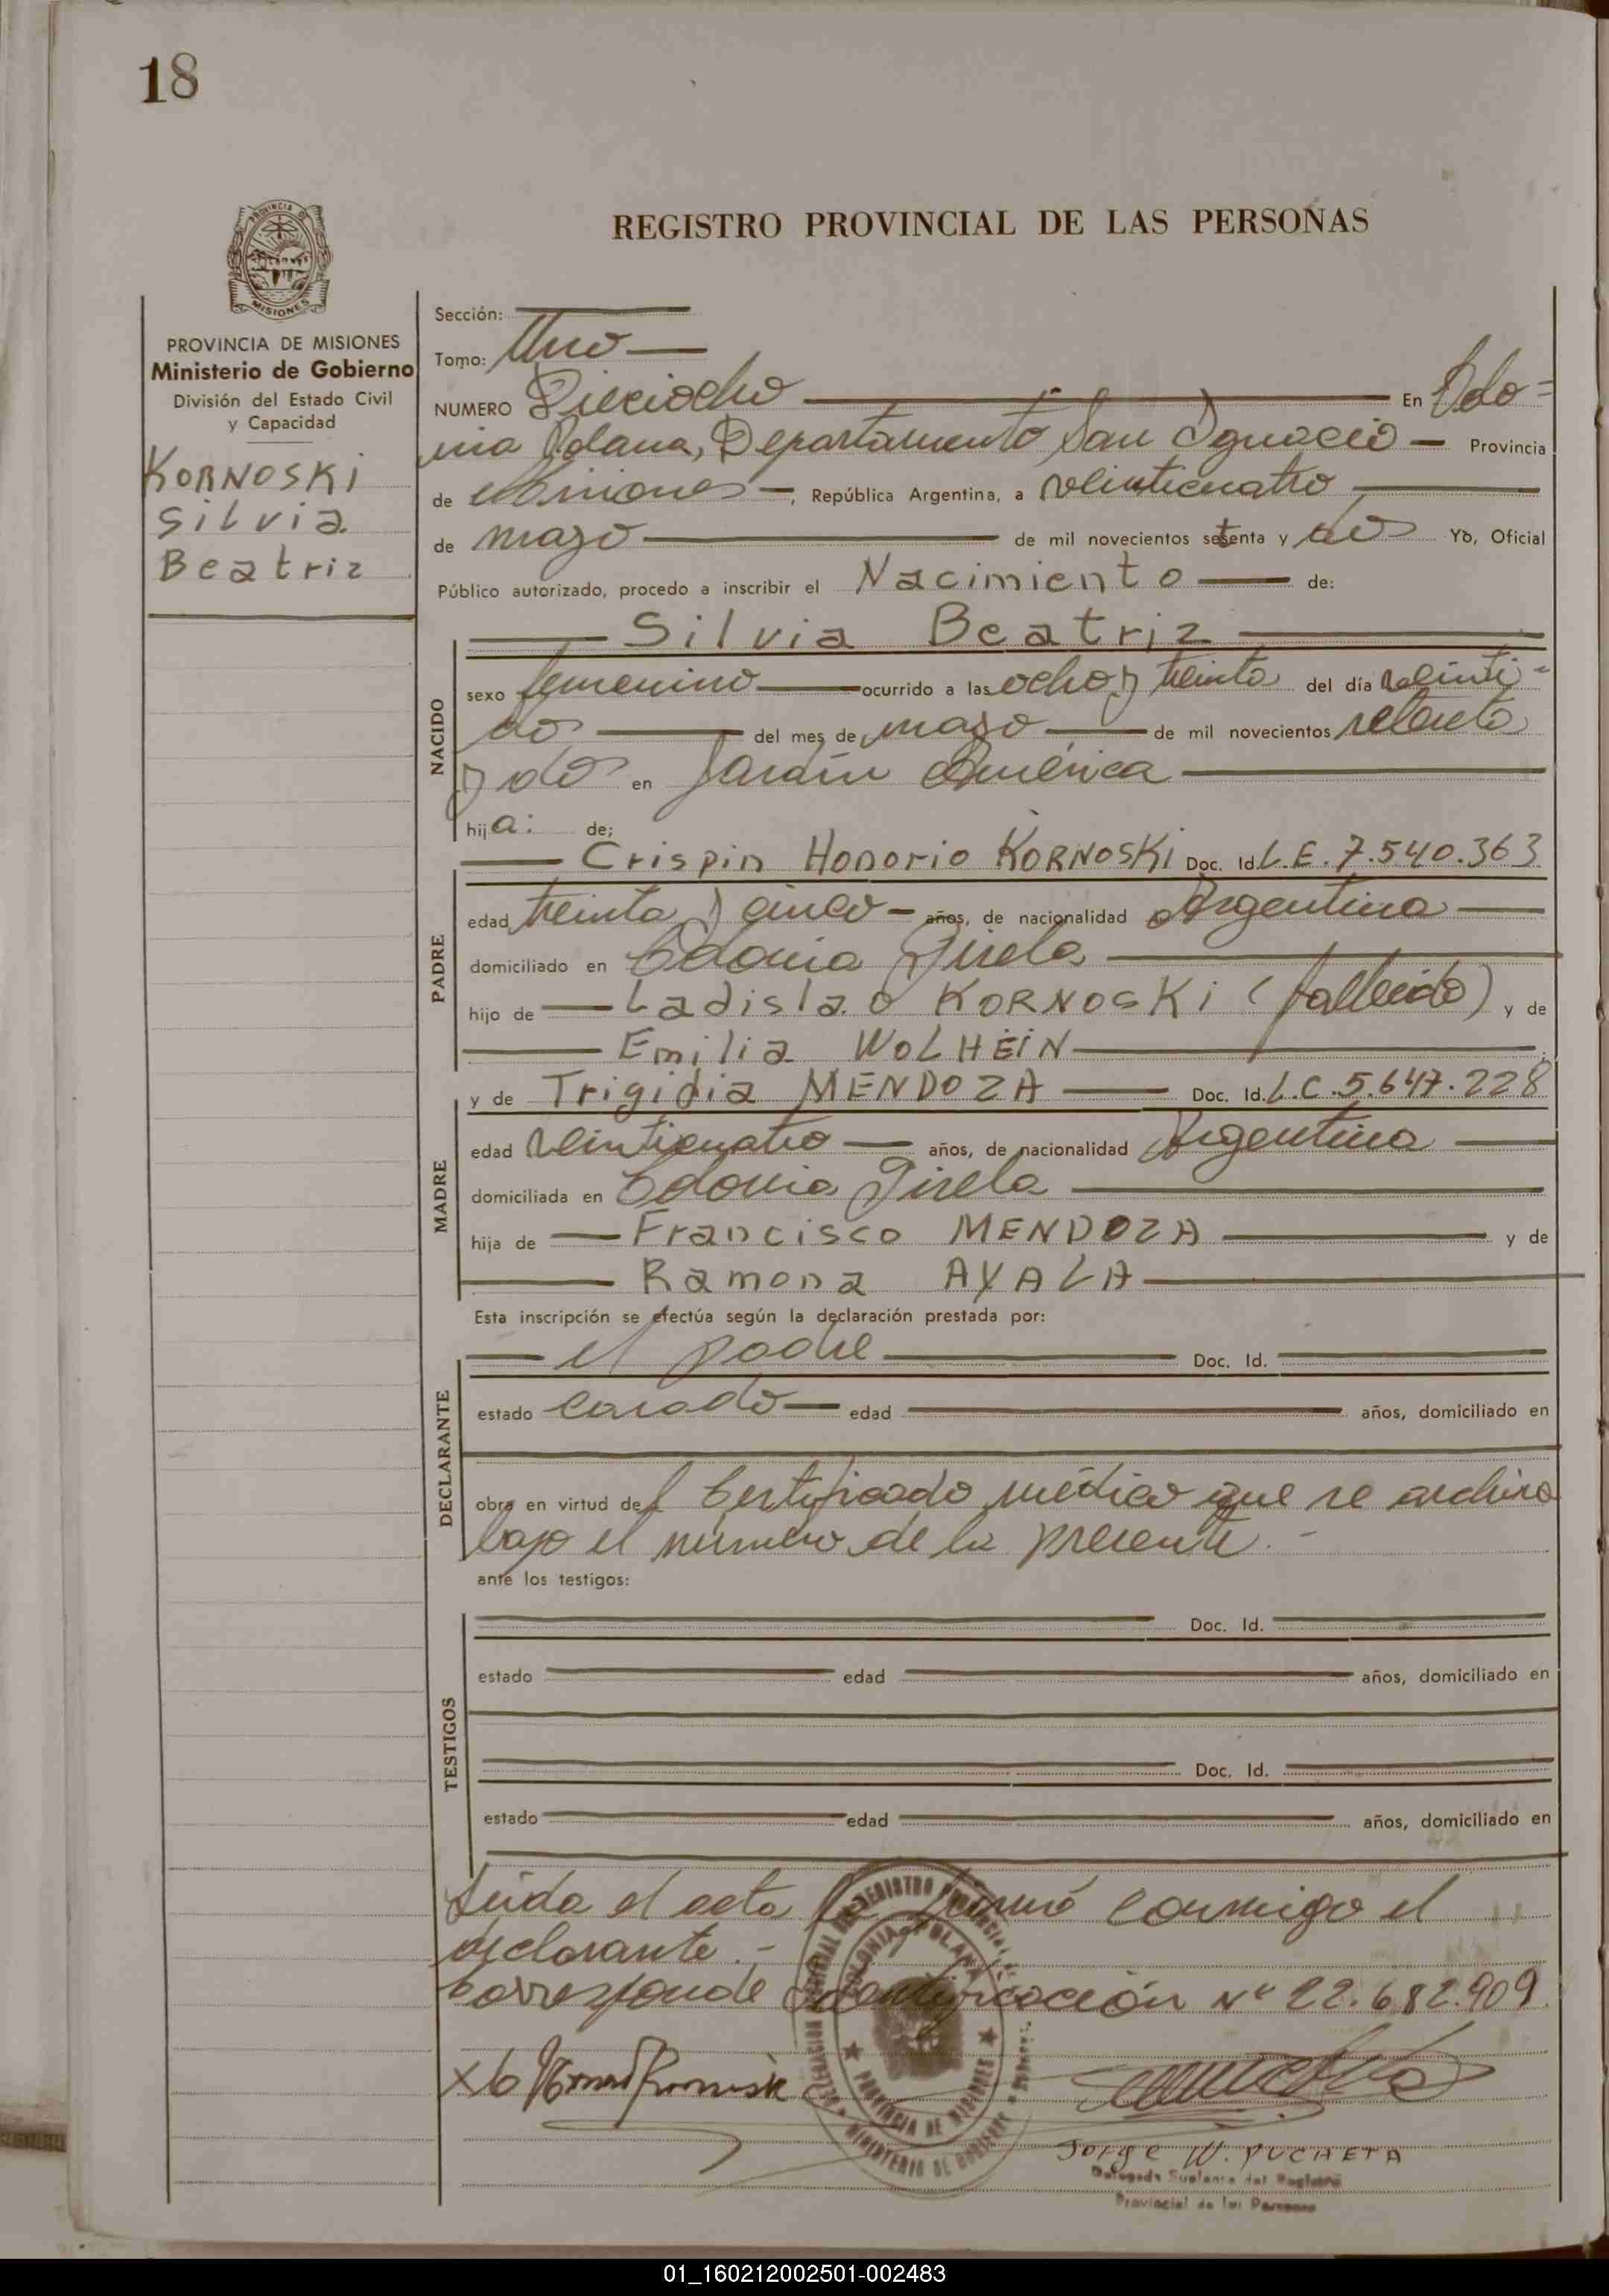 18
REGISTRO PROVINCIAL DE LAS PERSONAS
PROVINCIA DE
MISIONES
PROVINCIA DE MISIONES
Ministerio de Gobierno
División del Estado Civil
y Capacidad
KORNOSKi
Silvia
Beatriz
Sección:
Tomo: Uno
NUMERO Dieciocho En Colo=
nia Polana, Departamento San Ignacio Provincia
de Misiones, República Argentina, a veinticuatro
de mayo de mil novecientos setenta y dos Yo, Oficial
Público autorizado, procedo a inscribir el Nacimiento de:
Silvia Beatriz
NACIDO
sexo femenino ocurrido a las ocho y treinta del día veinti=
dos del mes de mayo de mil novecientos setenta
y dos en Jardín América
hija: de;
Crispin Honorio KORNOSKi Doc. Id. L.E. 7.540.363
PADRE
edad treinta y cinco años, de nacionalidad Argentina
domiciliado en Colonia Gisela
hijo de Ladislao KORNOSKi (fallecido) y de
Emilia WOLHEIN
y de Trigidia MENDOZA Doc. Id. L.C. 5.647.228
MADRE
edad veinticuatro años, de nacionalidad Argentina
domiciliada en Colonia Gisela
hija de Francisco MENDOZA y de
Ramona AYALA
Esta inscripción se efectúa según la declaración prestada por:
el padre Doc. Id.
DECLARANTE
estado casado edad años, domiciliado en
obra en virtud del Certificado médico que se archiva
bajo el número de la presente.-
ante los testigos:
TESTIGOS
Doc. Id.
estado edad años, domiciliado en
Doc. Id.
estado edad años, domiciliado en
Leída el acta la firmó conmigo el
declarante.-
Corresponde Identificación Nº 22.682.909
COLONIA POLANA
PROVINCIA DE MISIONES
MINISTERIO DE GOBIERNO
Jorge W. PUCHETA
Delegado Suplente del Registro
Provincial de las Personas
01_160212002501-002483